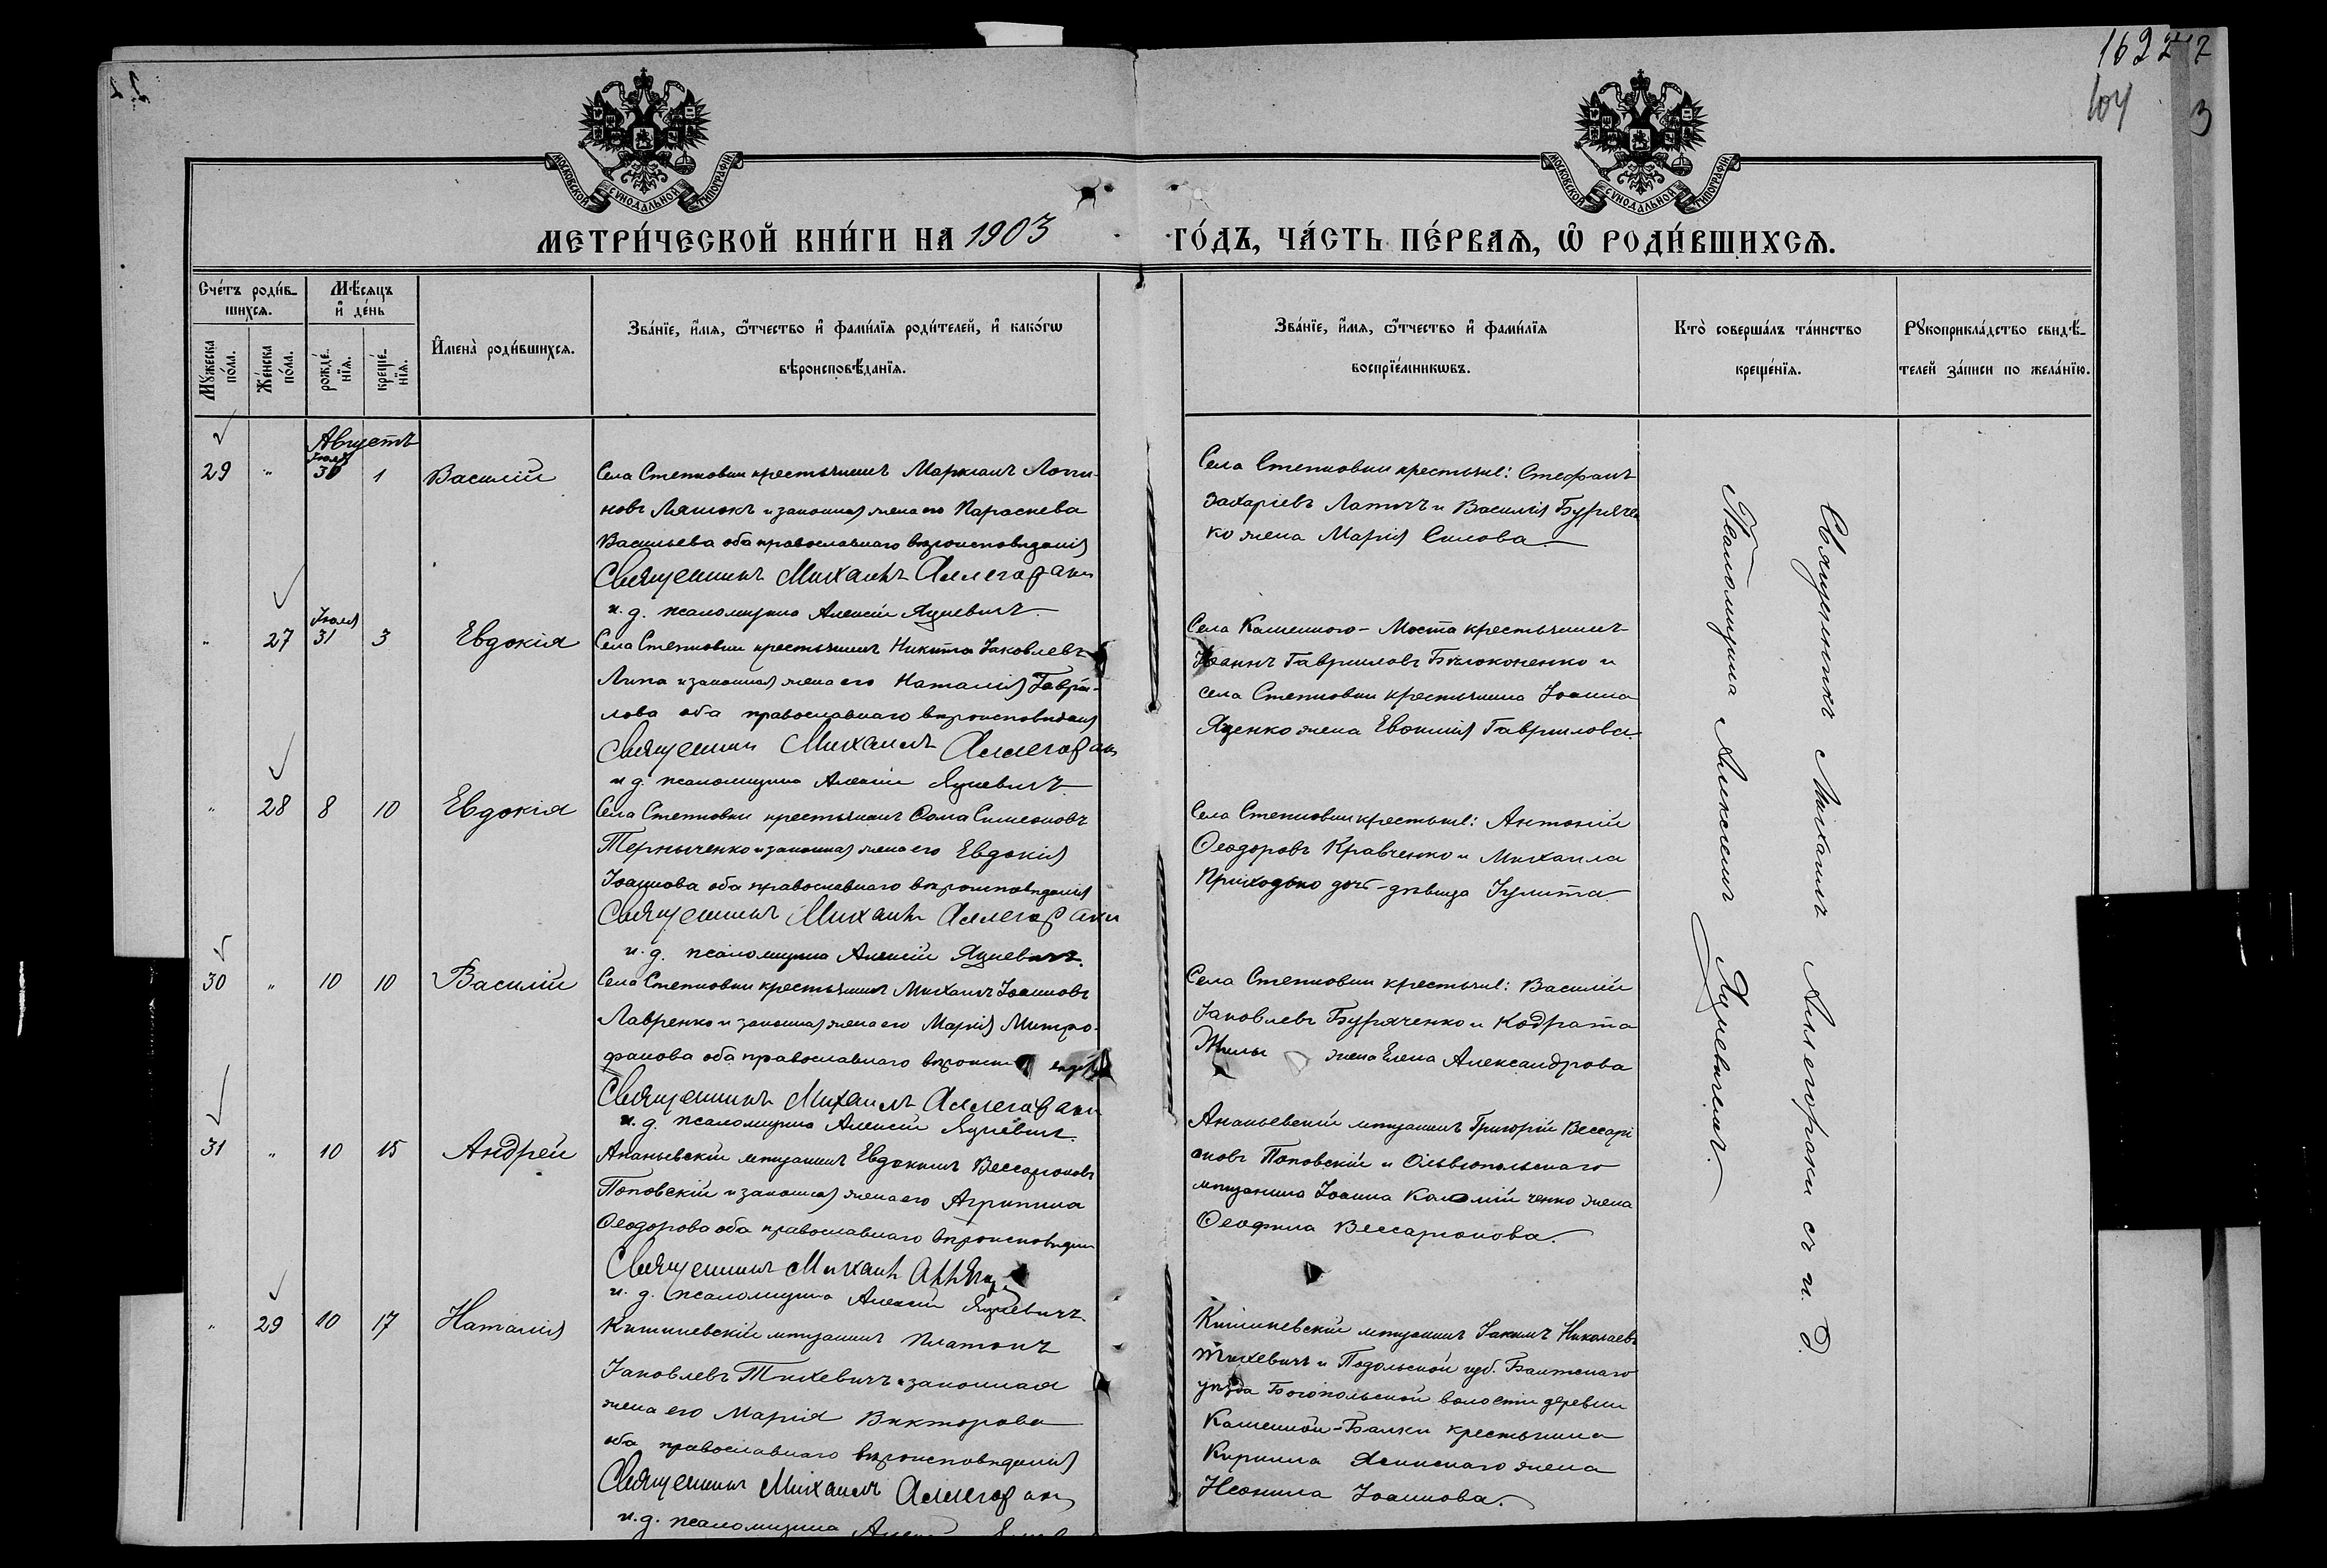 1622
12
104
3
МОСКОВСКОЙ СѴНОДАЛЬНОЙ ТИПОГРАФІИ
МОСКОВСКОЙ СѴНОДАЛЬНОЙ ТИПОГРАФІИ
МЕТРИ́ЧЕСКОЙ КНИ́ГИ НА 1903 ГО́ДЪ, ЧА́СТЬ ПЕ́РВАѦ, Ѡ҆ РОДИ́ВШИХСѦ.
Сче́тъ роди́в-
шихсѧ.
Мꙋ́жеска
по́ла.
Же́нска
по́ла.
Мѣ́сѧцъ
и҆ де́нь
рожде́-
нїѧ.
креще́-
нїѧ.
И҆мена̀ роди́вшихсѧ.
Зва́нїе, и҆́мѧ, ѻ҆́тчество и҆ фами́лїѧ роди́телей, и҆ како́гѡ
вѣроисповѣ́данїѧ.
Зва́нїе, и҆́мѧ, ѻ҆́тчество и҆ фами́лїѧ
воспрїе́мникѡвъ.
Кто̀ соверша́лъ та́инство
креще́нїѧ.
Рꙋкоприкла́дство свидѣ́-
телей за́писи по жела́нїю.
Августъ
Іюля
29 " 30 1 Василій
Села Степковки крестьянинъ Маркіанъ Логи-
новъ Ляшокъ и законная жена его Параскева
Васильева оба православнаго вѣроисповѣданія
Священникъ Михаилъ Аллегораки
и. д. псаломщика Алексій Яцкевичъ
Села Степковки крестьяне: Стефанъ
Захаріевъ Лапичъ и Василія Бурячен
ко жена Марія Силова
Іюля
" 27 31 3 Евдокія
Села Степковки крестьянинъ Никита Іаковлевъ
Липа и законная жена его Наталія Гаврі-
лова оба православнаго вѣроисповѣданія
Священникъ Михаилъ Аллегораки
и. д. псаломщика Алексій Яцкевичъ
Села Каменного-Моста крестьянинъ
Іоаннъ Гавриловъ Бѣлоконенко и
села Степковки крестьянина Іоанна
Яценко жена Евфимія Гаврилова.
" 28 8 10 Евдокія
Села Степковки крестьянинъ Ѳома Симеоновъ
Терныченко и законная жена его Евдокія
Іоаннова оба православнаго вѣроисповѣданія
Священникъ Михаилъ Аллегораки
и. д. псаломщика Алексій Яцкевичъ.
Села Степковки крестьяне: Антоній
Ѳеодоровъ Кравченко и Михаила
Приходько дочь-дѣвица Іулита
30 " 10 10 Василій
Села Степковки крестьянинъ Михаилъ Іоанновъ
Лавренко и законная жена его Марія Митро-
фанова оба православнаго
Священникъ Михаилъ Аллегораки
и. д. псаломщика Алексій Яцкевичъ.
Села Степковки крестьяне: Василій
Іаковлевъ Буряченко и Кодрата
Жилы жена Елена Александрова
31 " 10 15 Андрей
Ананьевскій мѣщанинъ Евдокимъ Вессаріоновъ
Поповскій и законная жена его Агрипина
Ѳеодорова оба православнаго вѣроисповѣданія
Священникъ Михаилъ
и. д. псаломщика Алексій Яцкевичъ.
Ананьевскій мѣщанинъ Григорій Вессарі
оновъ Поповскій и Ольвіопольскаго
мѣщанина Іоанна Коломійченко жена
Ѳеофила Вессаріонова.
" 29 10 17 Наталія
Кишиневскій мѣщанинъ Платонъ
Іаковлевъ Тихевичъ и законная
жена его Марія Викторова
оба православнаго вѣроисповѣданія
Священникъ Михаилъ Аллегораки
и. д. псаломщика
Кишиневскій мѣщанинъ Іакимъ Николаевъ
Тихевичъ и Подольской губ. Балтскаго
уѣзда Богопольской волости деревни
Каменной-Балки крестьянина
Кирилла Ясинскаго жена
Неонила Іоаннова.
Священникъ Михаилъ Аллегораки съ и. д.
Псаломщика Алексіемъ Яцкевичемъ.